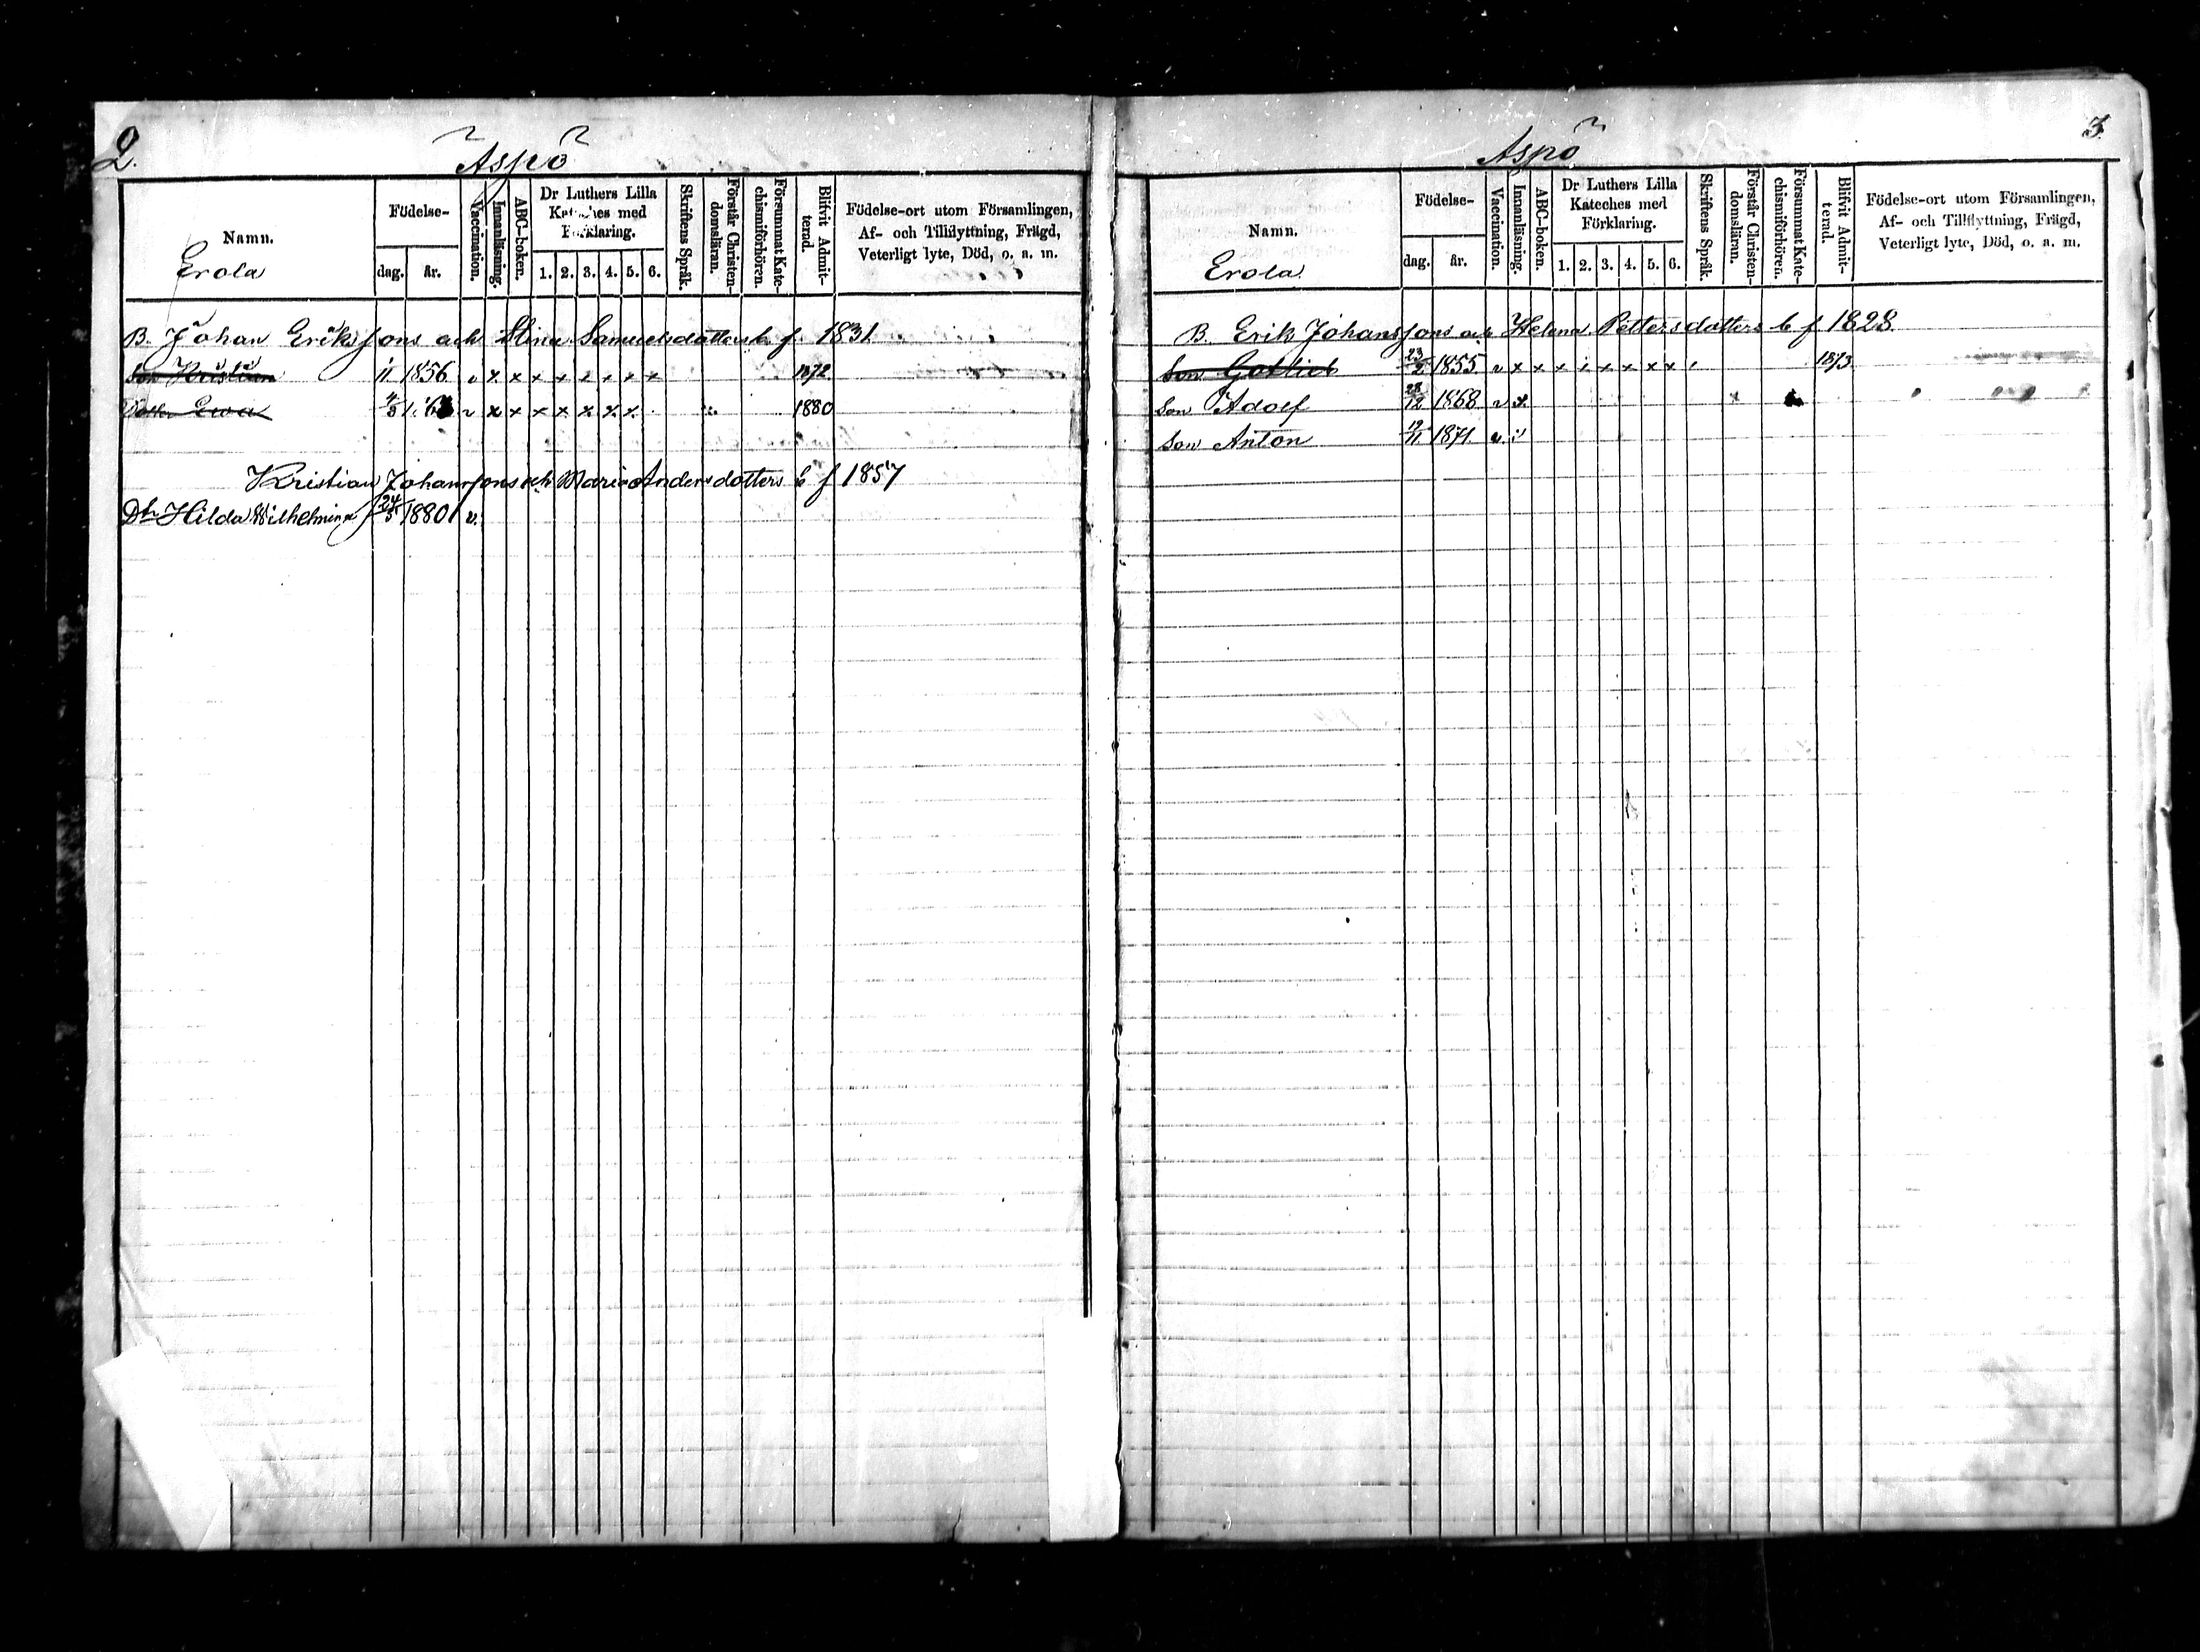 2.
Aspö
Namn.
Erola
Födelse-
dag. år.
Vaccination.
Innanläsning.
ABC-boken.
Dr Luthers Lilla
Kateches med
Förklaring.
1. 2. 3. 4. 5. 6.
Skriftens Språk.
Förstår Christen-
domsläran.
Försummat Kate-
chismiförhören.
Blifvit Admit-
terad.
Födelse-ort utom Församlingen,
Af- och Tillflyttning, Frägd,
Veterligt lyte, Död, o. a. m.
B. Johan Eriksons och Stina Samuelsdotters b f. 1831.
Son Kristian 1856 v x x x x x x x x 1872.
Dotter Ewa 4/3 v x x x x x x x 1880
Kristian Johanssons och Maria Andersdotters b f 1857
Dtr Hilda Wilhelmina 24/5 1880 v.
3.
Aspö
Namn.
Erola.
Födelse-
dag. år.
Vaccination.
Innanläsning.
ABC-boken.
Dr Luthers Lilla
Kateches med
Förklaring.
1. 2. 3. 4. 5. 6.
Skriftens Språk.
Förstår Christen-
domsläran.
Försummat Kate-
chismiförhören.
Blifvit Admit-
terad.
Födelse-ort utom Församlingen,
Af- och Tillflyttning, Frägd,
Veterligt lyte, Död, o. a. m.
B. Erik Johanssons och Helena Pettersdotters b f 1828.
Son Gotlieb 23/2 1855 v x x x x x x x x 1873.
Son Adolf 28/12 1868 v x
Son Anton 19/11 1871. v.